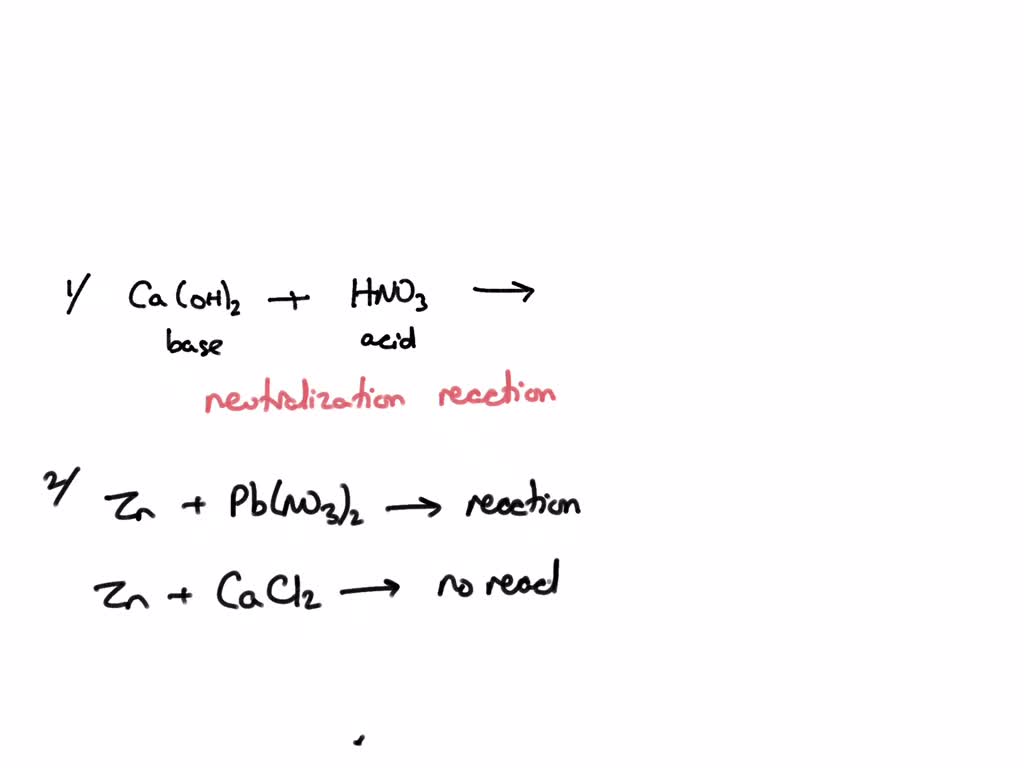 1/ Ca(OH)2 + HNO3 →
base acid
neutralization reaction
2/ Zn + Pb(NO3)2 → reaction
Zn + CaCl2 → no read